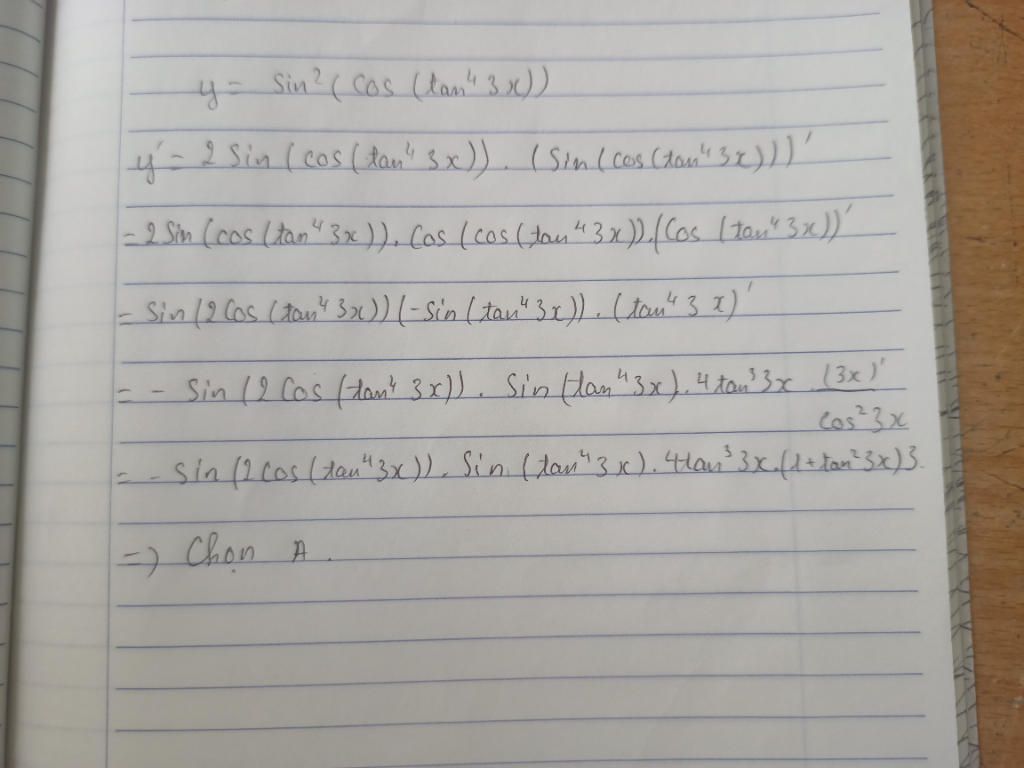 y = Sin²(Cos (tan⁴ 3x))
y' = 2 Sin (cos (tan⁴ 3x)) . (Sin (cos (tan⁴ 3x)))'
= 2 Sin (cos (tan⁴ 3x)). Cos (cos (tan⁴ 3x)).(Cos (tan⁴ 3x))'
= Sin (2 Cos (tan⁴ 3x)) (-Sin (tan⁴ 3x)) . (tan⁴ 3 x)'
= - Sin (2 Cos (tan⁴ 3x)) . Sin (tan⁴ 3x). 4 tan³ 3x . (3x)' / cos² 3x
= - Sin (2 cos (tan⁴ 3x)). Sin (tan⁴ 3x). 4tan³ 3x.(1+tan² 3x)3.
=> Chọn A.